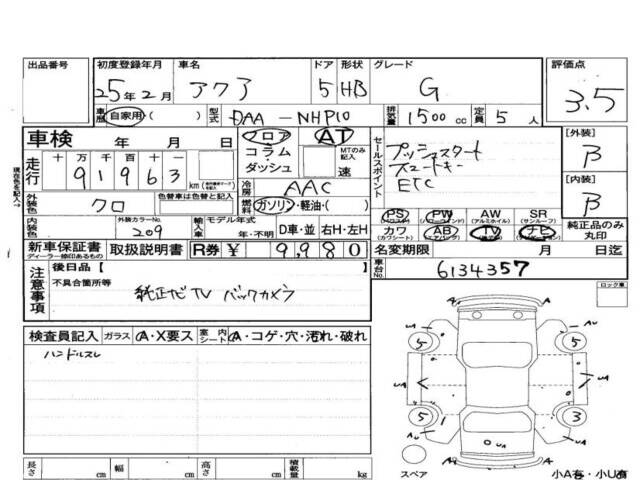 出品番号 初度登録年月 車名 ドア 形状 グレード 評価点
25年2月 アクア 5 HB G 3.5
車歴 自家用・( ) 型式 DAA-NHP10 排気量 1500cc 定員 5人
車検 年 月 日 フロア コラム・ダッシュ AT MTのみ記入 速
セールスポイント プッシュスタート
スマートキー
ETC
[外装] B
[内装] B
走行 十 万 千 百 十 一
91963 km
冷房 AAC
外装色 クロ 色替車は色替と記入 燃料 ガソリン・軽油・( )
PS PW AW SR
(パワステ) (パワーウィンドウ) (アルミホイル) (サンルーフ)
カワ AB TV ナビ
(カワシート) (エアバッグ)
純正品のみ丸印
内装色 外装カラーNo. 209 輸入車 モデル年式 年・不明 D車・並 右H・左H
新車保証書 取扱説明書 R券 ¥ 9,980
ディーラー捺印あるもの
名変期限 月 日迄
車台No. 6134357
注意事項 後日品【
不具合箇所等
純正ナビTV バックカメラ
ロック車
検査員記入 ガラス A・X要ス 室内シート A・コゲ・穴・汚れ・破れ
ハンドルスレ
A A
AU U
5 5
UA UA
5 1 3
AU UA A
A A
スペア 小A有・小U有
長さ cm 幅 cm 高さ cm 積載量 kg
現在色を記入